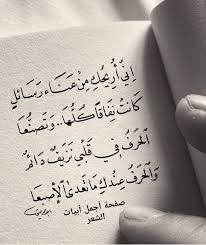 إنّي أُريحُكِ مِن عَنَاءِ رَسائلٍ
كانَتْ نِفَاقًا كُلُّهَا.. وَتَصَنُّعَا
الحَرفُ في قَلبِي نَزِيفٌ دَائمٌ
وَالحَرفُ عِندَكِ مَا تَعَدَّى الإصبَعَا
صفحة أجمل أبيات
الشعر